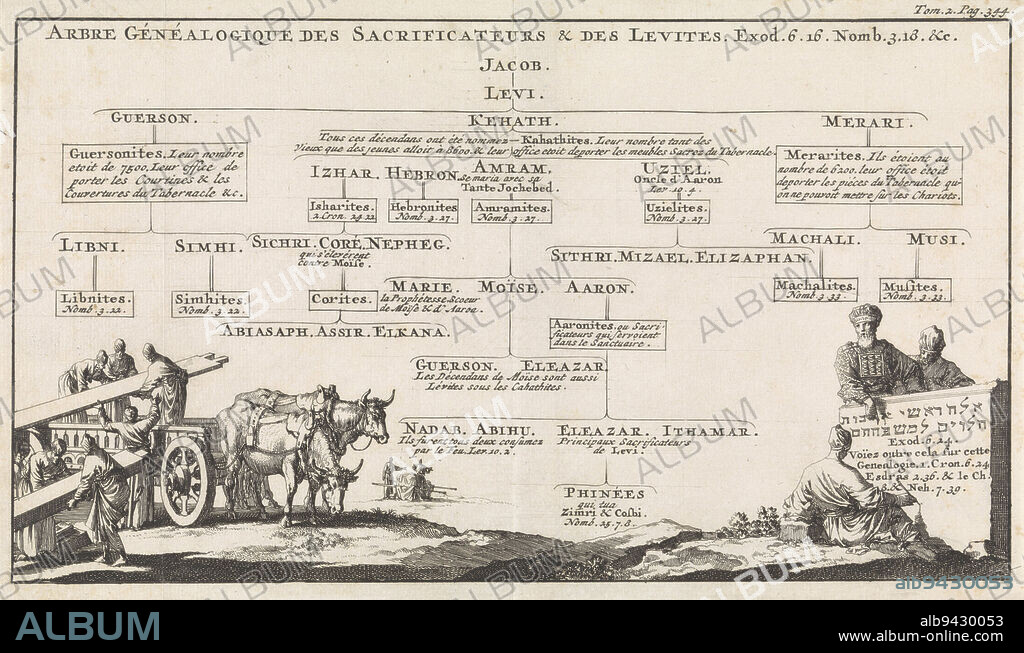 Tom. 2. Pag. 344.
ARBRE GÉNÉALOGIQUE DES SACRIFICATEURS & DES LEVITES. Exod. 6. 16. Nomb. 3. 18. &c.
JACOB.
LEVI.
GUERSON.
KEHATH.
MERARI.
Tous ces décendans ont été nommez Kahathites. Leur nombre tant des
Vieux que des jeunes alloit à 8600. & leur office etoit de porter les meubles Sacrez du Tabernacle.
Guersonites. Leur nombre
etoit de 7500. Leur office de
porter les Courtines & les
Couvertures du Tabernacle &c.
Merarites. Ils étoient au
nombre de 6200. leur office étoit
de porter les piéces du Tabernacle qu'
on ne pouvoit mettre sur les Chariots.
IZHAR. HEBRON.
AMRAM.
Se maria avec sa
Tante Jochebed.
UZIEL.
Oncle d'Aaron
Lev. 10. 4.
Isharites.
2. Cron. 24. 22.
Hebronites
Nomb. 3. 27.
Amramites.
Nomb. 3. 27.
Uzielites.
Nomb. 3. 27.
LIBNI.
SIMHI.
SICHRI. CORÉ. NEPHEG.
qui s'éleverent
contre Moïse.
SITHRI. MIZAEL. ELIZAPHAN.
MACHALI.
MUSI.
Libnites.
Nomb. 3. 22.
Simhites.
Nomb. 3. 22.
Corites.
MARIE. MOÏSE. AARON.
la Prophétesse Soeur
de Moïse & d'Aaron.
Machalites.
Nomb. 3. 33.
Musites.
Nomb. 3. 33.
ABIASAPH. ASSIR. ELKANA.
Aaronites. ou Sacri-
ficateurs qui servoient
dans le Sanctuaire.
GUERSON. ELEAZAR.
Les Décendans de Moïse sont aussi
Lévites sous les Cahathites.
NADAB. ABIHU.
Ils furent tous deux consumez
par le Feu. Lev. 10. 2.
ELEAZAR. ITHAMAR.
Principaux Sacrificateurs
de Levi.
PHINÉES
qui tua
Zimri & Cosbi.
Nomb. 25. 7. 8.
אלה ראשי אבות
הלוים למשפחתם
Exod. 6. 24.
Voïez outre cela sur cette
Genealogie. 1. Cron. 6. 24.
Esdras 2. 36. & le Ch.
8. & Neh. 7. 39.
alb9430053
ALBUM
alb9430053
www.album-online.com